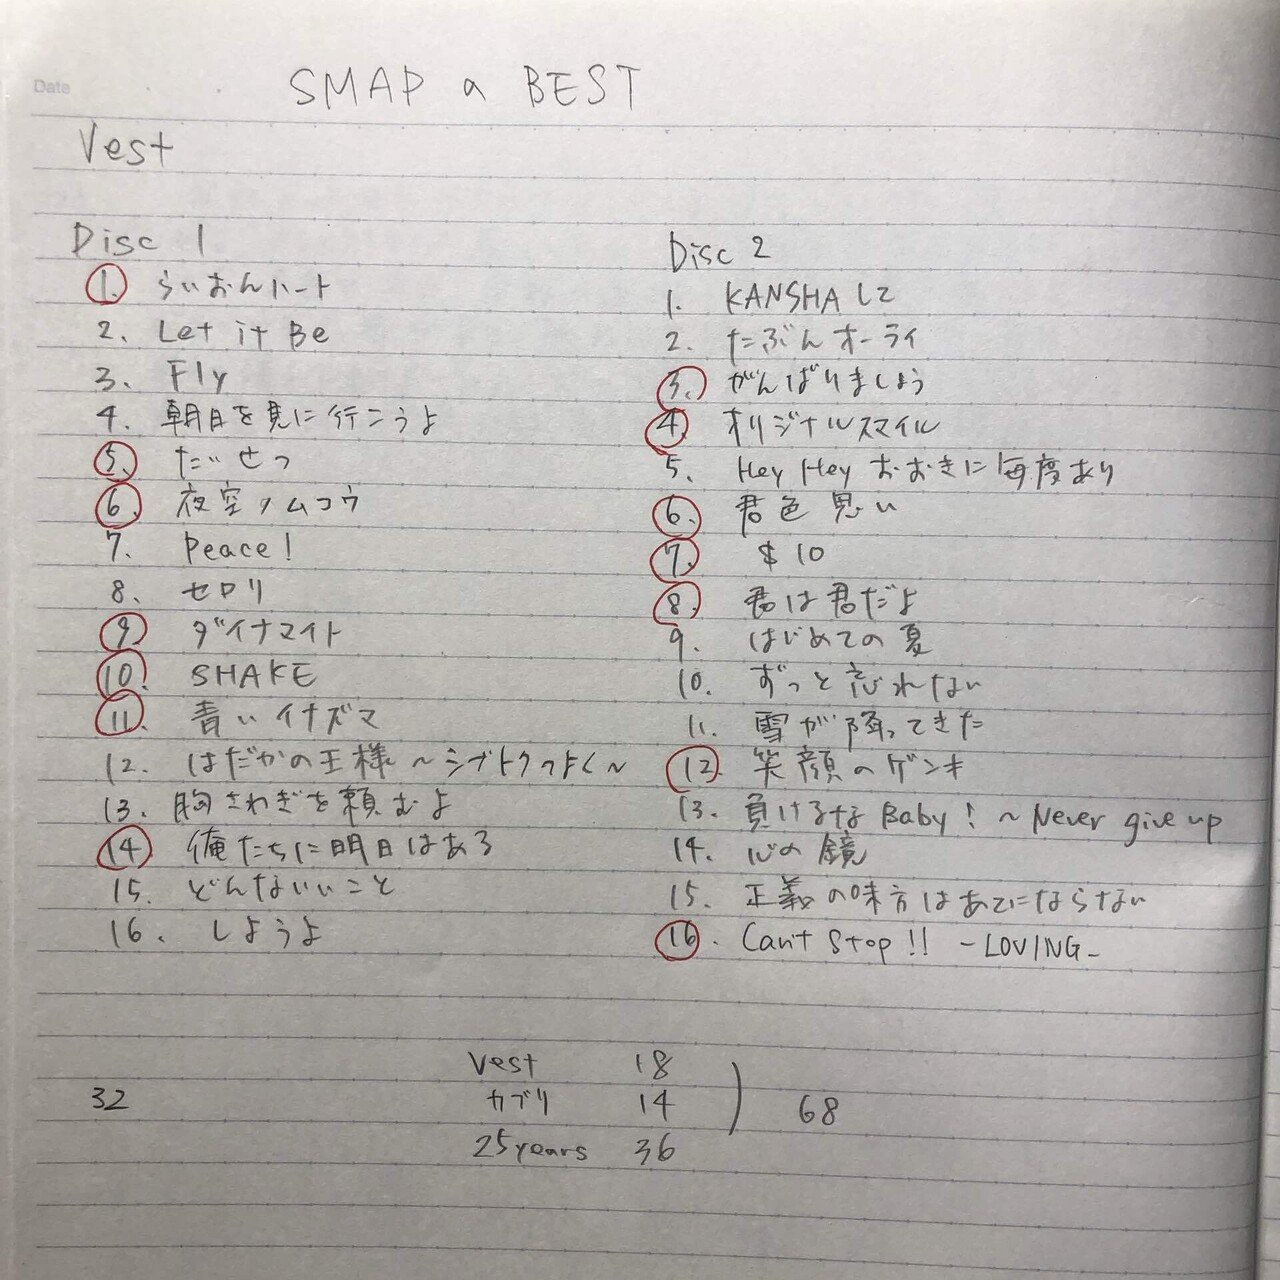 Date
SMAP a BEST
Vest
Disc 1
1. らいおんハート
2. Let it Be
3. Fly
4. 朝日を見に行こうよ
5. たいせつ
6. 夜空ノムコウ
7. Peace!
8. セロリ
9 ダイナマイト
10. SHAKE
11. 青いイナズマ
12. はだかの王様 ～シブトクつよく～
13. 胸さわぎを頼むよ
14 俺たちに明日はある
15. どんないいこと
16. しようよ
Disc 2
1. KANSHAして
2. たぶんオーライ
3. がんばりましょう
4. オリジナルスマイル
5. Hey Hey おおきに毎度あり
6. 君色思い
7. $10
8. 君は君だよ
9. はじめての夏
10. ずっと忘れない
11. 雪が降ってきた
12 笑顔のゲンキ
13. 負けるなBaby! ～Never give up
14. 心の鏡
15. 正義の味方はあてにならない
16. Can't Stop!! -LOVING-
32
Vest 18
カブリ 14 ) 68
25years 36